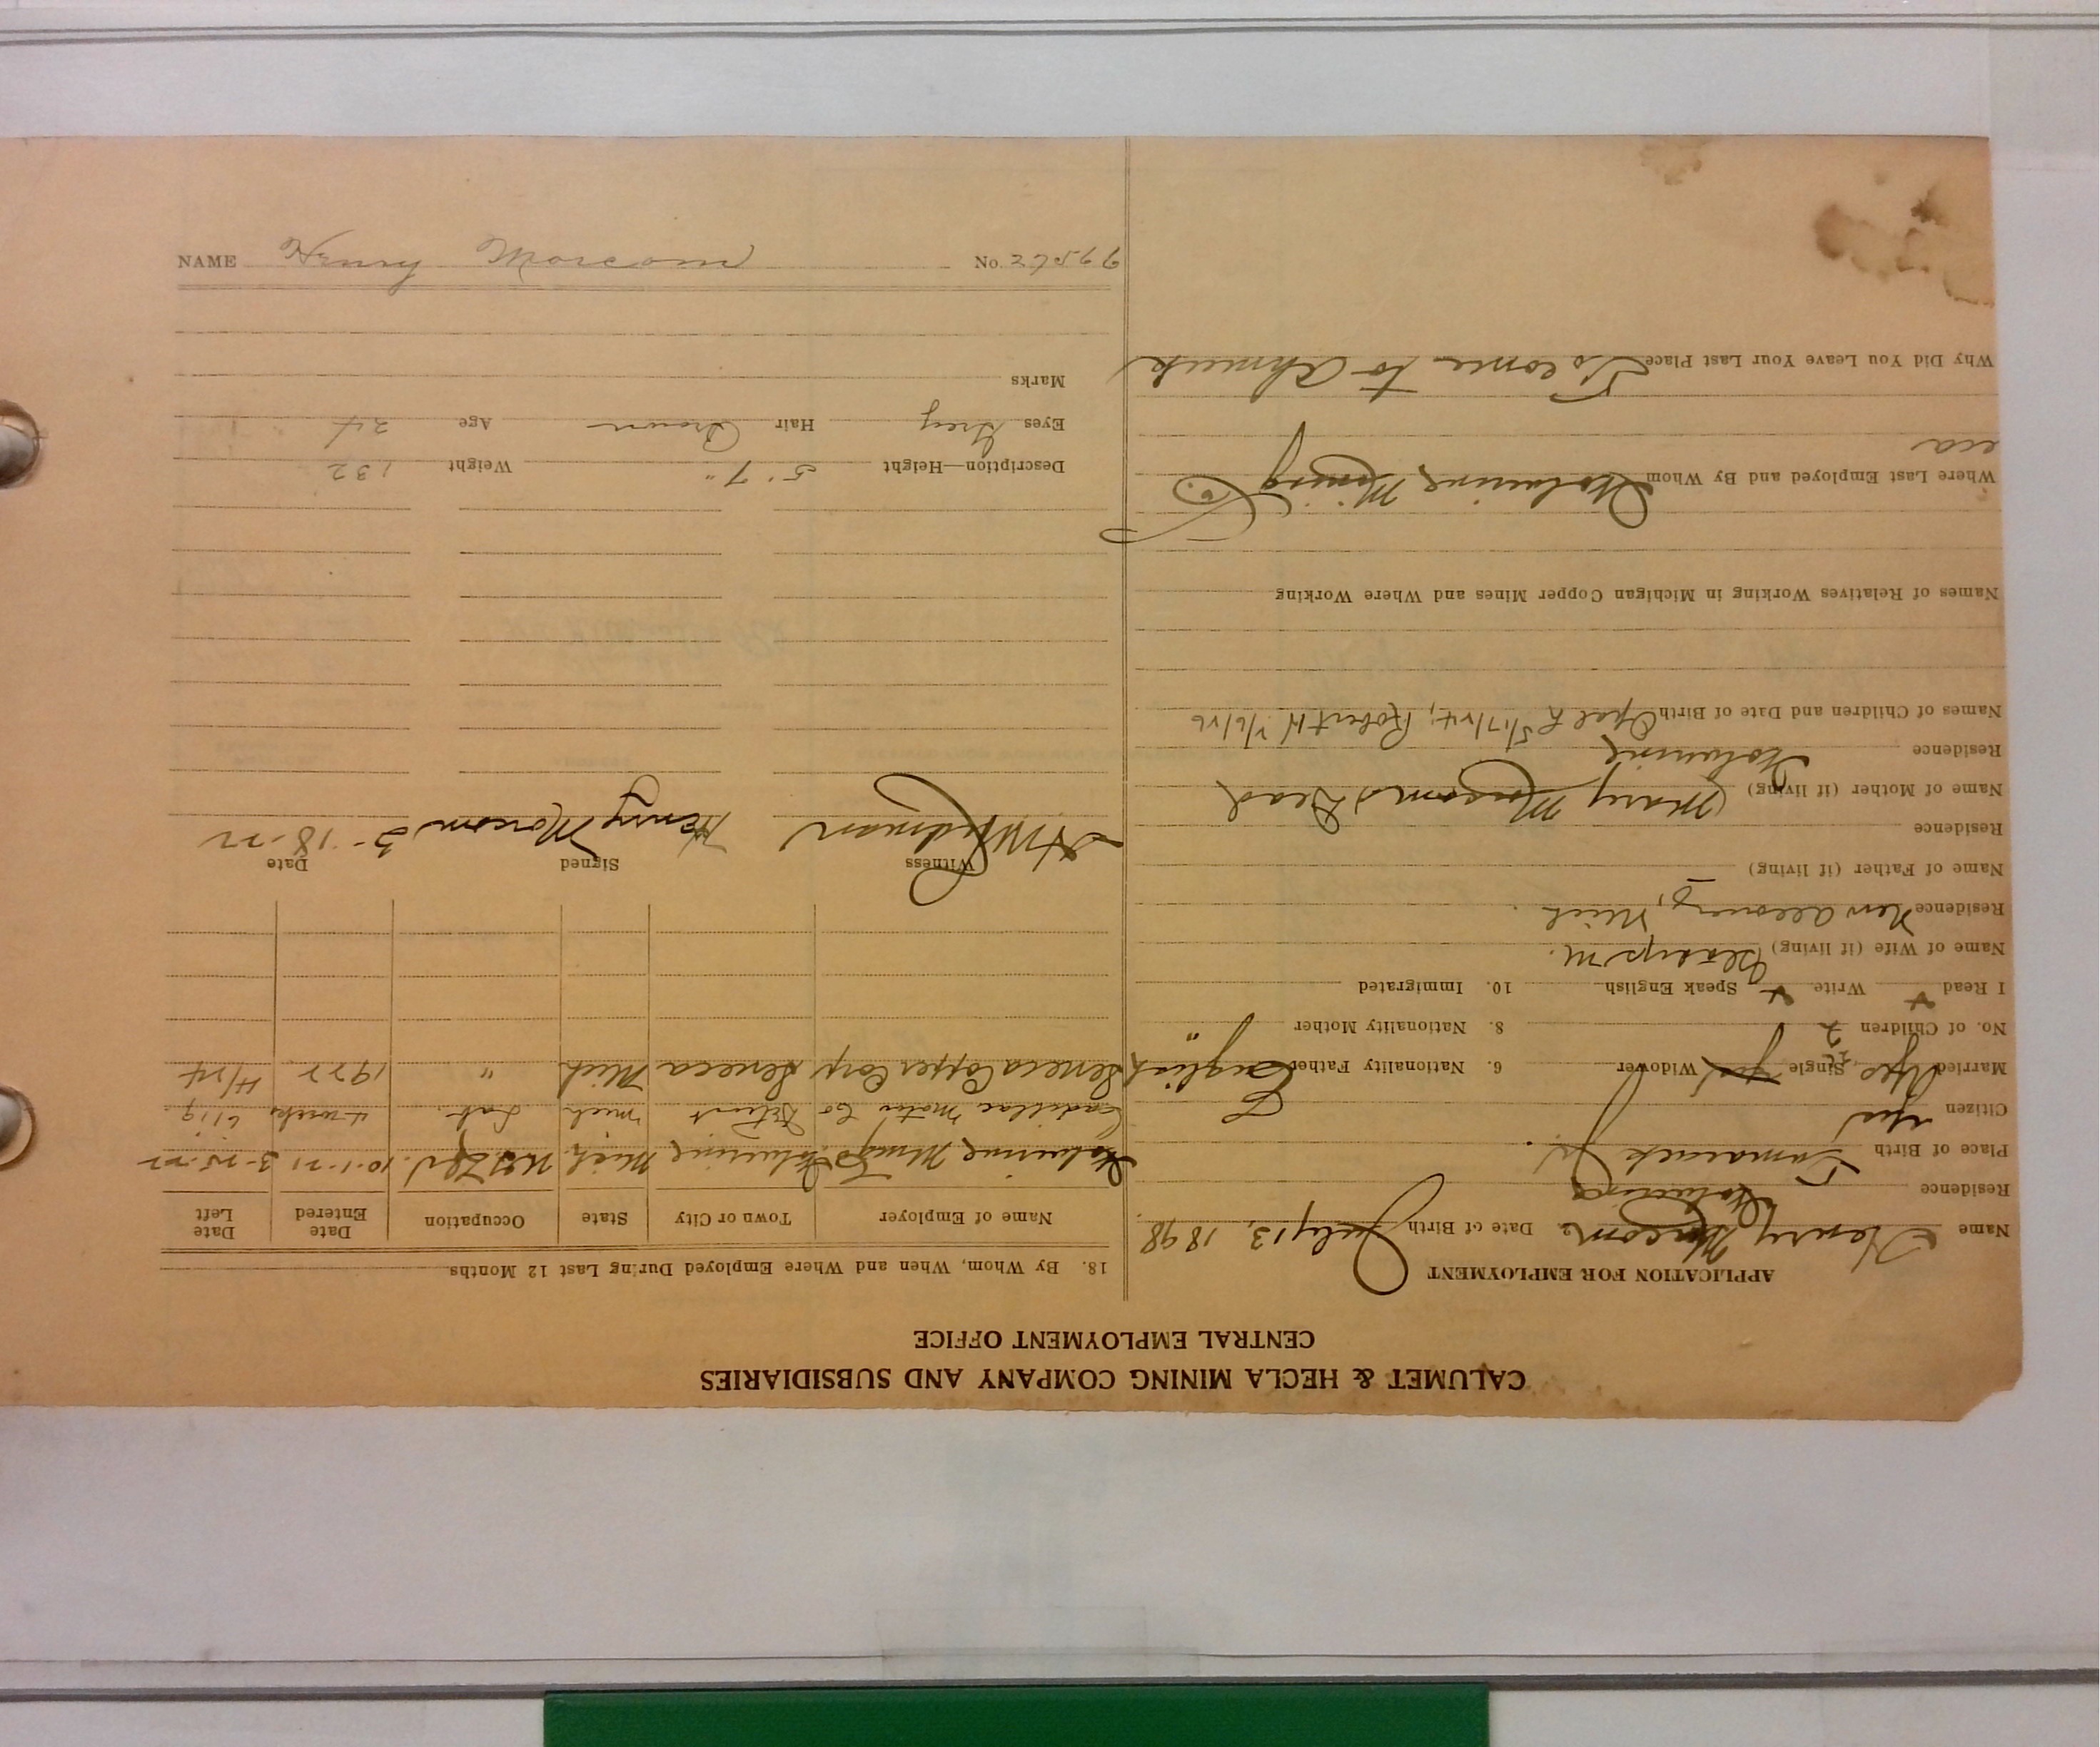 CALUMET & HECLA MINING COMPANY AND SUBSIDIARIES
CENTRAL EMPLOYMENT OFFICE
APPLICATION FOR EMPLOYMENT
Name Henry Morcom Date of Birth July 13, 1898
Residence Wolverine
Place of Birth Tamarack Jr.
Citizen yes
Married Yes Single yes Widower 6. Nationality Father English
No. of Children 2 8. Nationality Mother "
I Read Write Speak English 10. Immigrated
Name of Wife (if living) Gladys M.
Residence New Allouez, Mich.
Name of Father (if living)
Residence
Name of Mother (if living) Mary Morcom Dead
Residence Wolverine
Names of Children and Date of Birth Opal R 5/17/24; Robert H
Names of Relatives Working in Michigan Copper Mines and Where Working
Where Last Employed and By Whom Wolverine Mining Co
eca
Why Did You Leave Your Last Place To come to Ahmeek
18. By Whom, When and Where Employed During Last 12 Months
Name of Employer Town or City State Occupation Date Entered Date Left
Wolverine Mining Co Wolverine Mich 10-1-21 3-15-22
Cadillac Motor Co Detroit Mich Lab. 4 weeks
Seneca Copper Corp Seneca Mich " 1922 4/24
Witness Signed Date
Henry Morcom 3-18-22
Description—Height 5' 7" Weight 132
Eyes Grey Hair Brown Age 24
Marks
NAME Henry Morcom No.